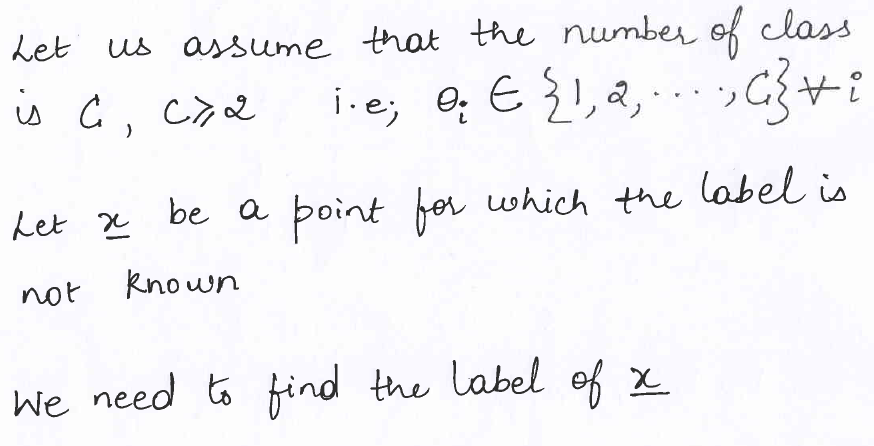 Let us assume that the number of class
is C, C⩾2 i.e; θᵢ ∈ {1, 2, ...., C} ∀ i
Let x be a point for which the label is
not known
We need to find the label of x